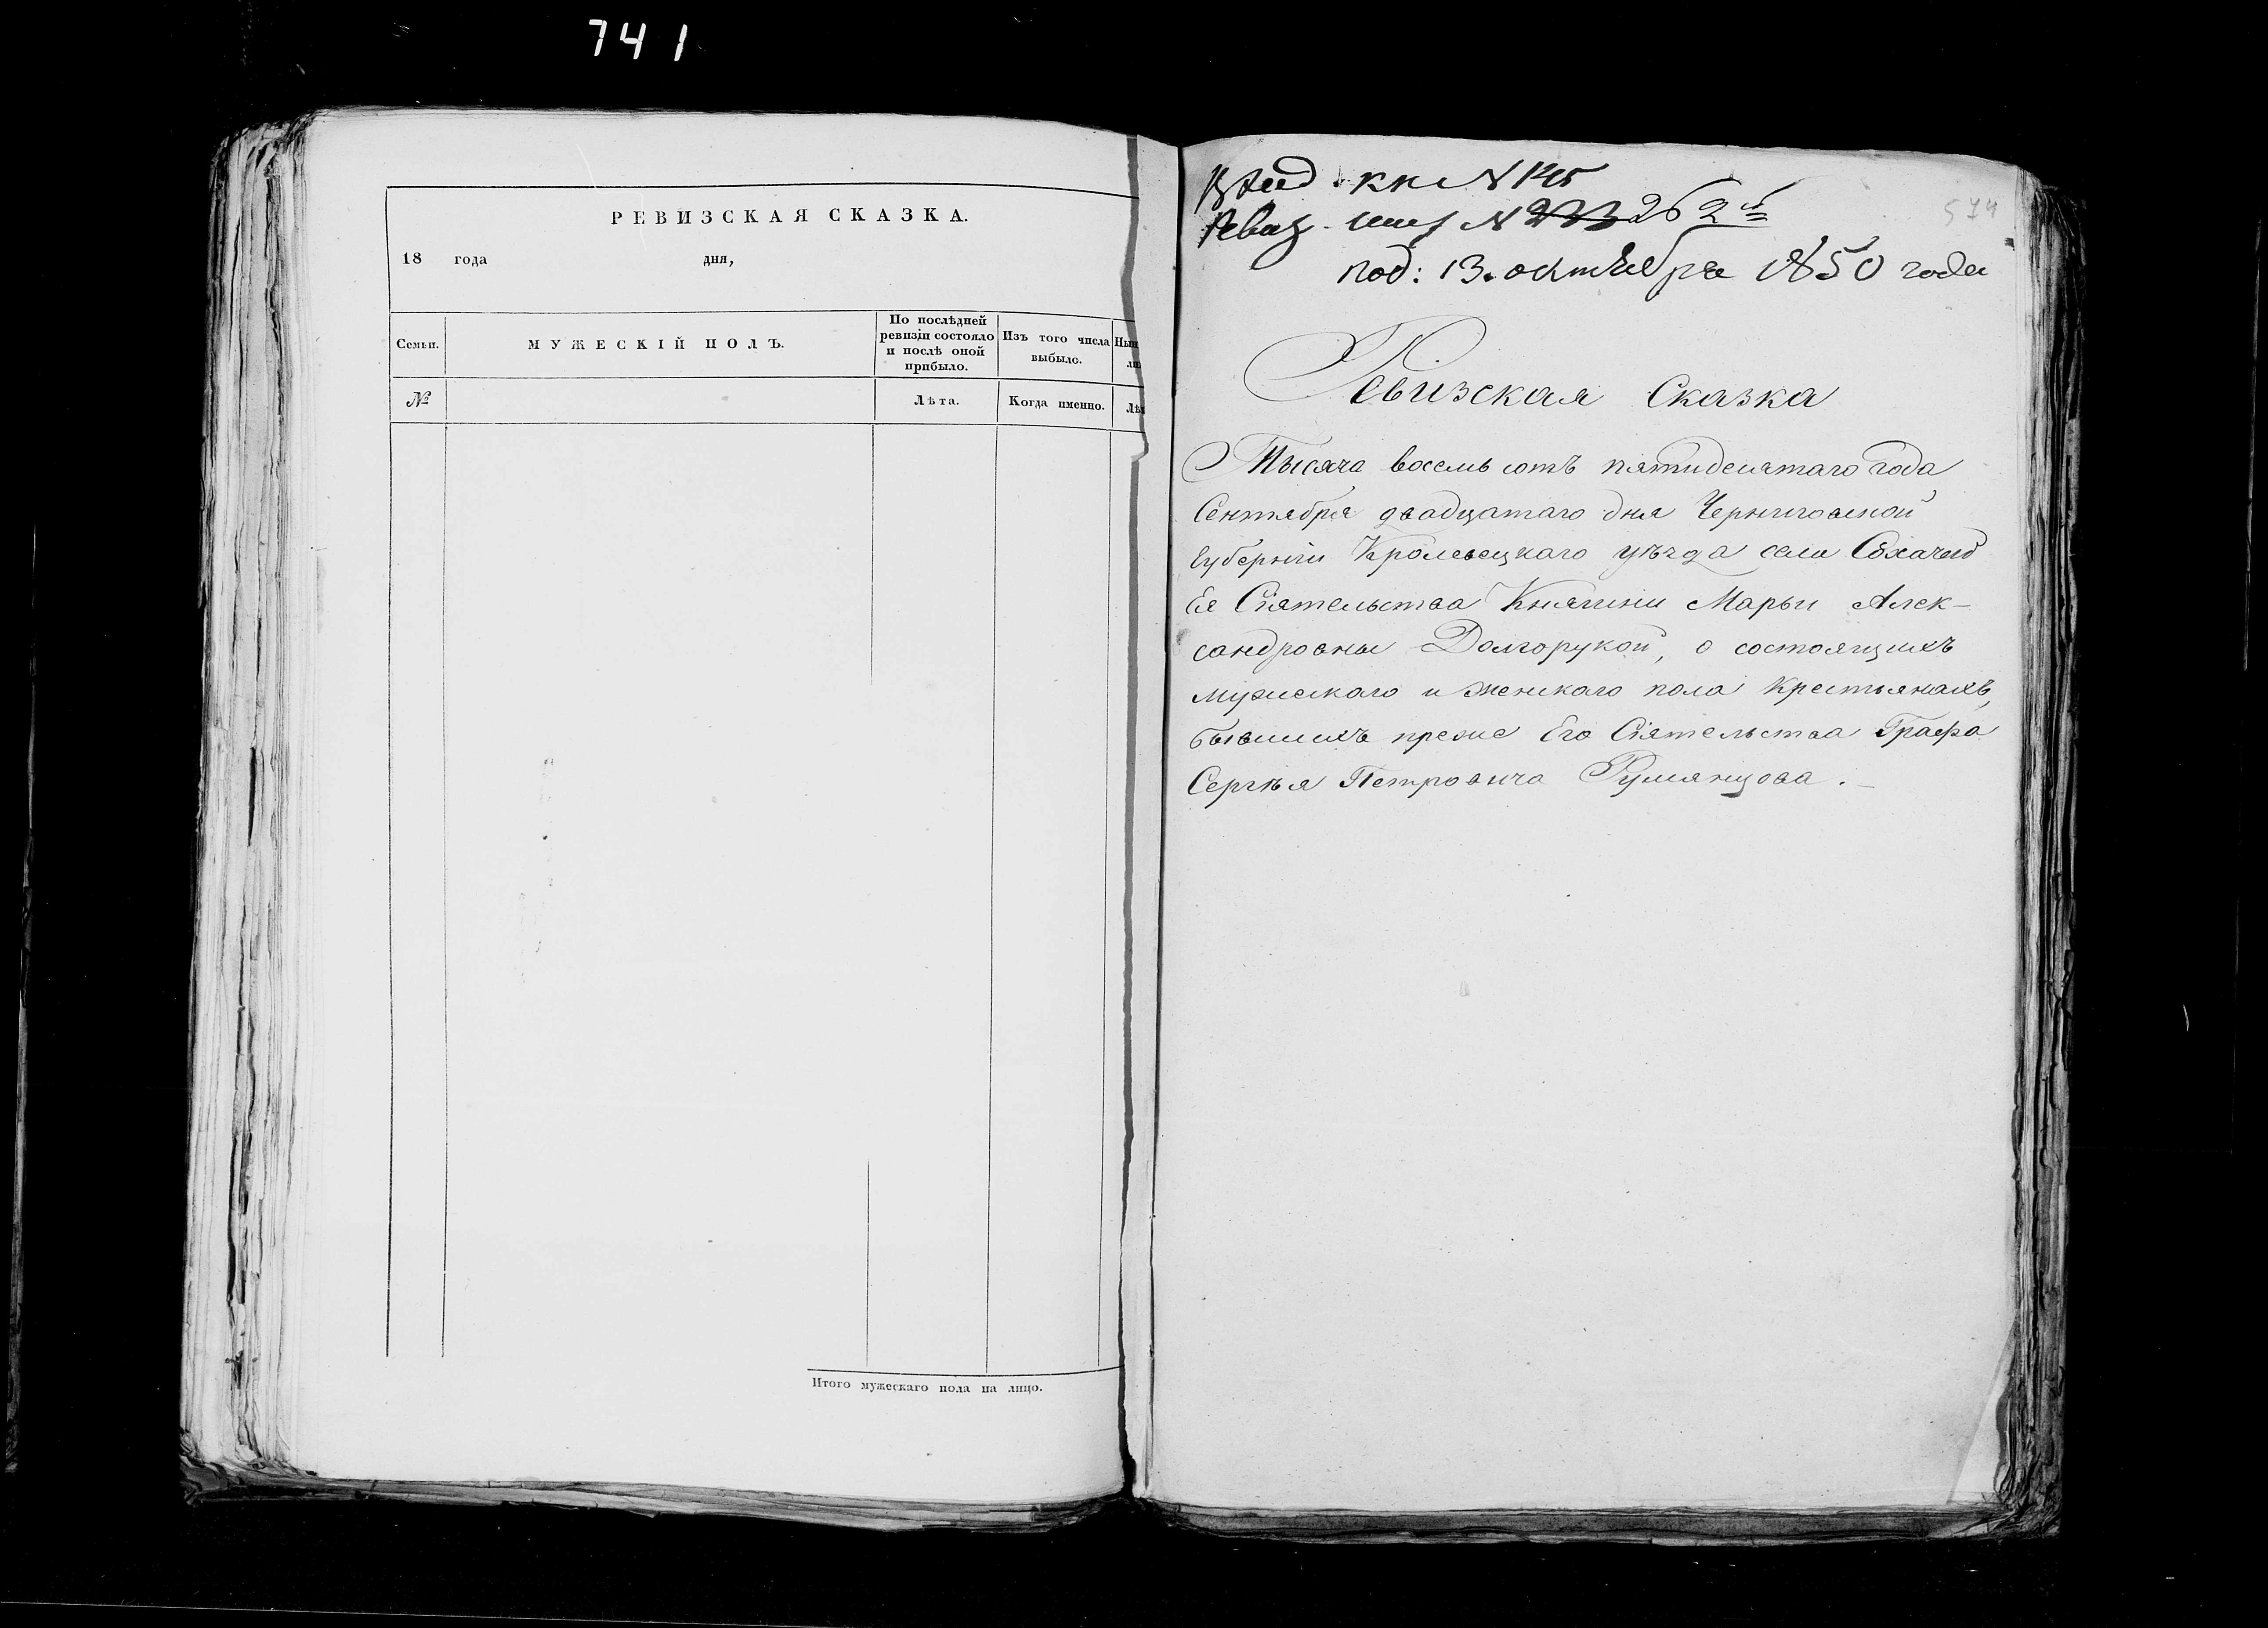 741
РЕВИЗСКАЯ СКАЗКА.
18 года дня,
Семьи.
МУЖЕСКІЙ ПОЛЪ.
По послѣдней
ревизіи состояло
и послѣ оной
прибыло.
Изъ того числа
выбыло.
№
Лѣта.
Когда именно.
Итого мужескаго пола на лицо.
574
№ 145
Ревиз. № 262
под: 13. октября 1850 года
Ревизская Сказка
Тысяча восемь сотъ пятидесятаго года
Сентября двадцатаго дня Черниговской
Губерніи Кролевецкаго уѣзда села
Ея Сіятельства Княгини Марьи Алек-
сандровны Долгорукой, о состоящихъ
мужескаго и женскаго пола крестьянахъ,
бывшихъ преже Его Сіятельства Графа
Сергѣя Петровича Румянцова.